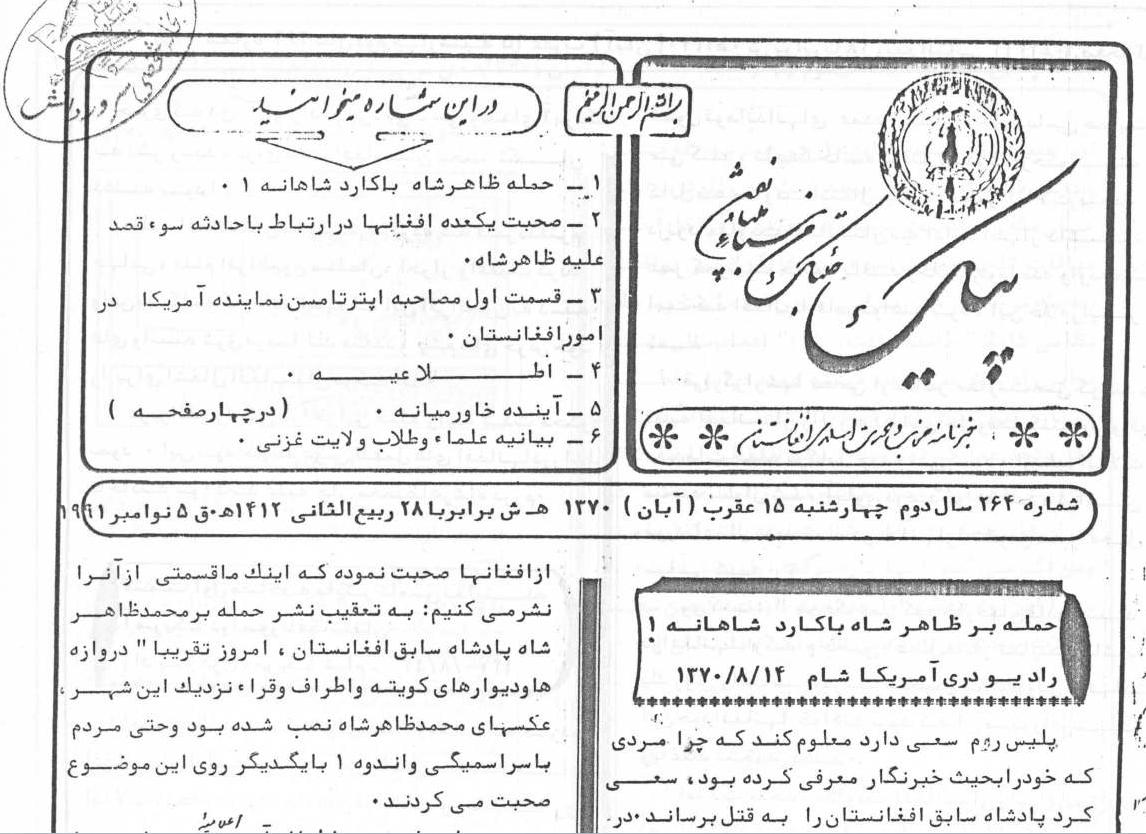 بسم الله الرحمن الرحیم
در این شماره میخوانید
۱ ــ حمله ظاهرشاه باکارد شاهانه ! ۰
۲ ــ صحبت یکعده افغانها در ارتباط با حادثه سوء قصد
علیه ظاهرشاه ۰
۳ ــ قسمت اول مصاحبه اپترتامسن نماینده آمریکا در
امور افغانستان ۰
۴ ــ اطلاعیه ۰
۵ ــ آینده خاورمیانه ۰ ( در چهار صفحه )
۶ ــ بیانیه علماء وطلاب ولایت غزنی ۰
شماره ۲۶۴ سال دوم چهارشنبه ۱۵ عقرب ( آبان ) ۱۳۷۰ هـ ش برابر با ۲۸ ربیع الثانی ۱۴۱۲هـ۰ق ۵ نوامبر ۱۹۹۱
حمله بر ظاهر شاه باکارد شاهانه !
رادیو دری آمریکا شام ۱۳۷۰/۸/۱۴
پلیس روم سعی دارد معلوم کند که چرا مردی
که خود را بحیث خبرنگار معرفی کرده بود، سعی
کرد پادشاه سابق افغانستان را به قتل برساند۰در
از افغانها صحبت نموده که اینك ما قسمتی از آنرا
نشر می کنیم: به تعقیب نشر حمله بر محمد ظاهر
شاه پادشاه سابق افغانستان ، امروز تقریبا " دروازه
ها ودیوارهای کویته واطراف وقراء نزدیك این شهر ،
عکسهای محمد ظاهر شاه نصب شده بود وحتی مردم
با سراسمیگی واندوه ! بایگدیگر روی این موضوع
صحبت می کردند۰